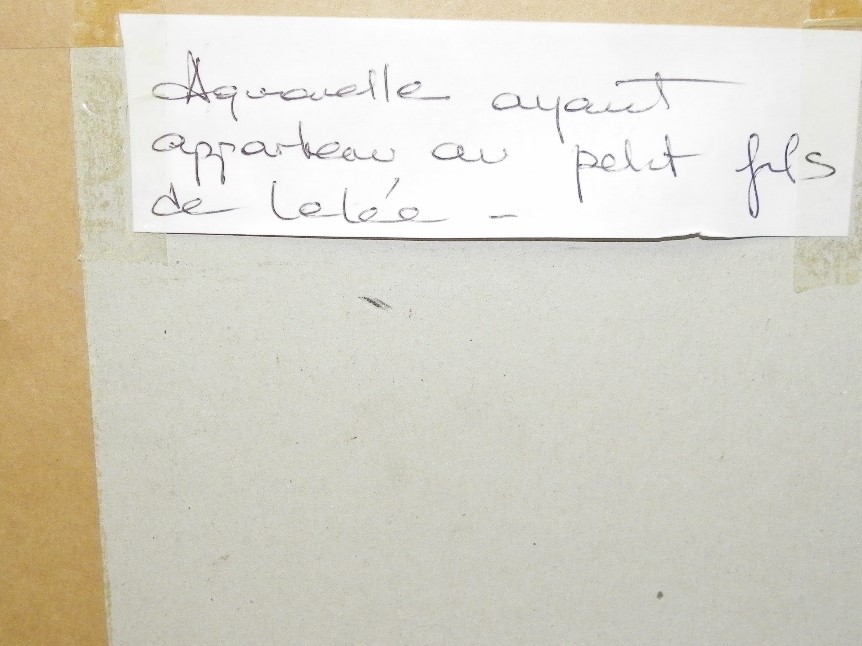 Aquarelle ayant
appartenu au petit fils
de Lalée -